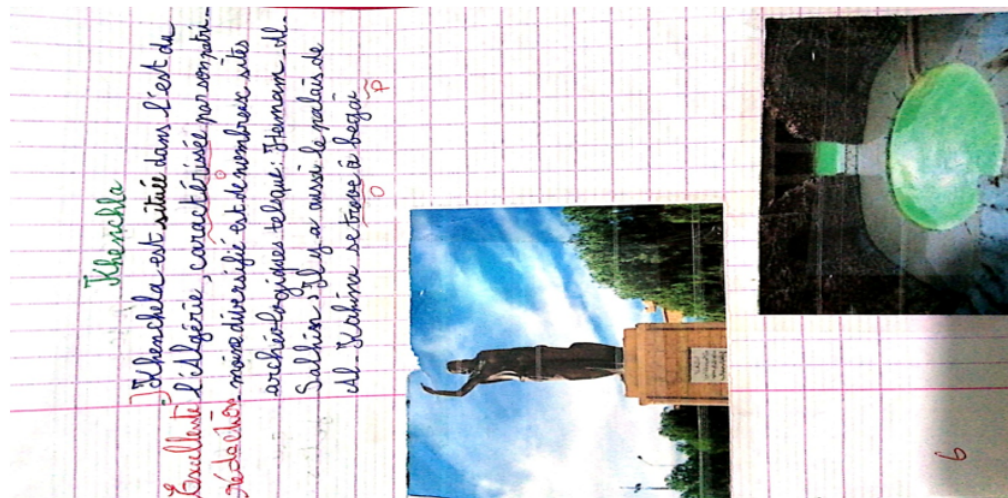 Khenchla
Khenchela est située dans l'est du
l'Algérie, caractérisée par son patri-
moine diversifié est de nombreux sites
archéologiques telsque : Hamam-Al-
Salhin, Il y a aussi le palais de
Al-Kahina se trove à begai
Excellente
rédaction
O
O
P
6